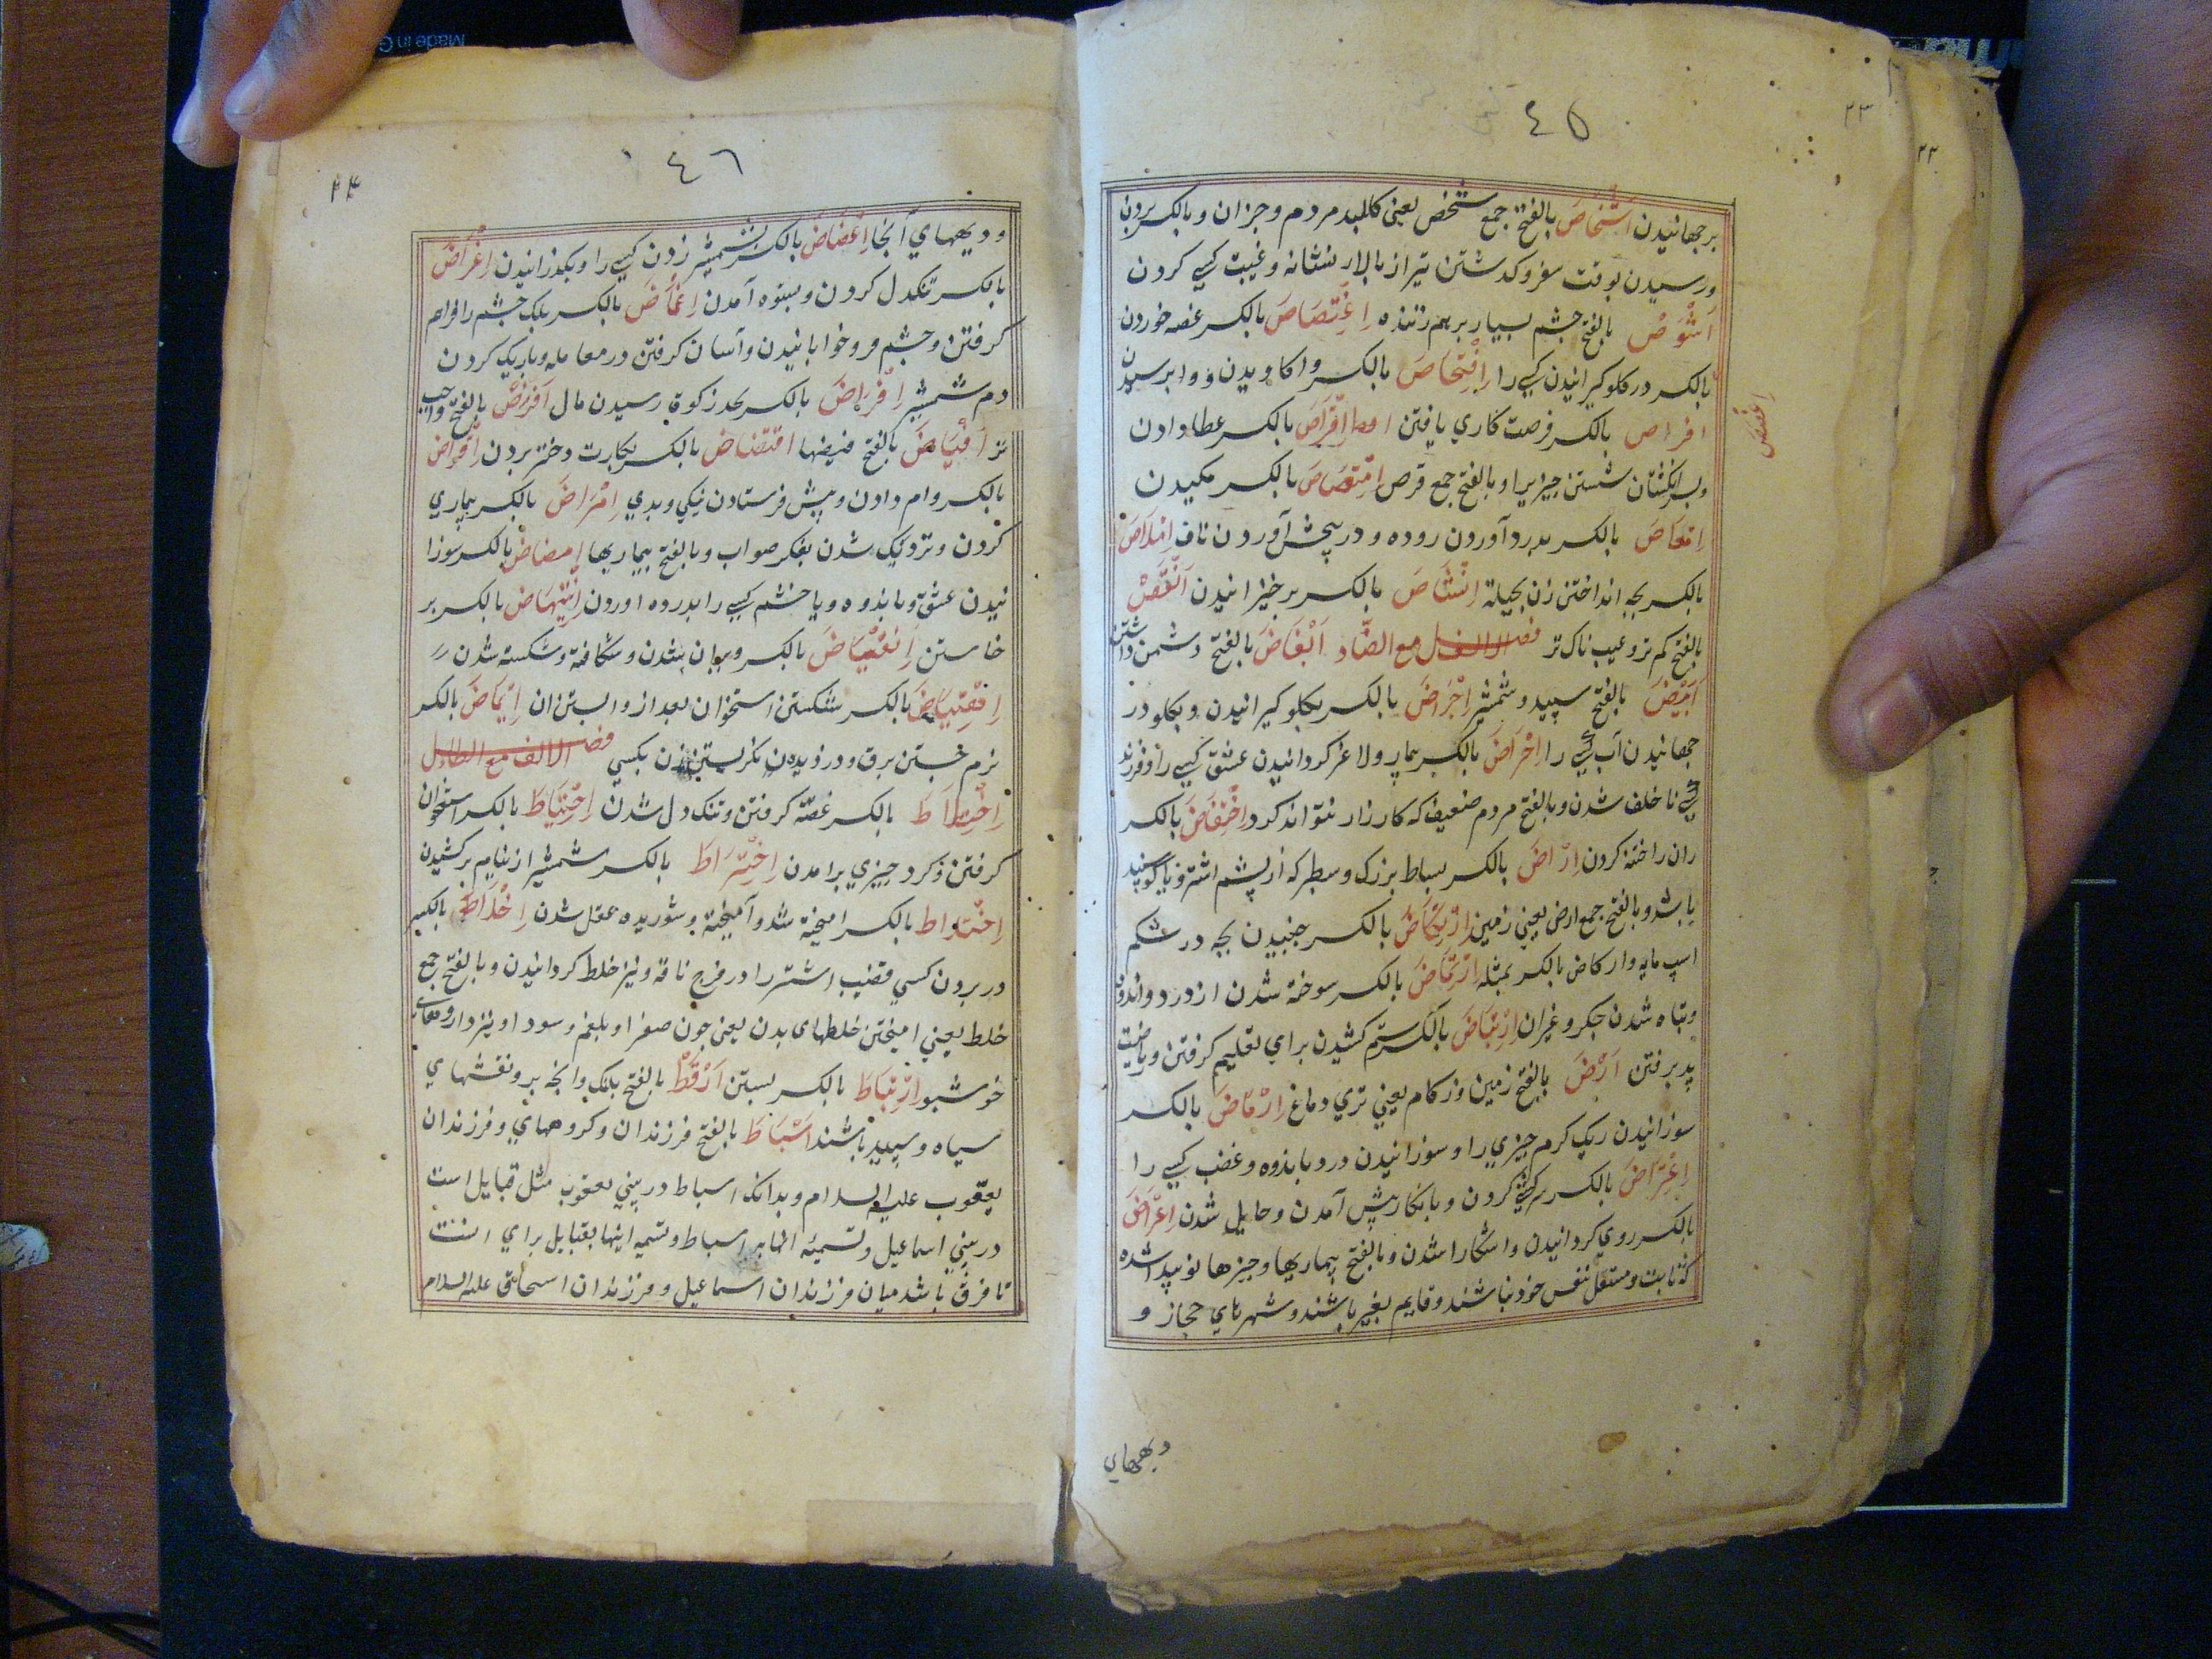 ٤٥
٢٣
٢٢
برجهانیدن اَشْخاصَ بالفتح جمع شخص یعنی کالبد مردم و جزان و بالکسر بردن
ورسیدن بوقت سفر و کدشتن تیر از بالای نشانه و غیبت کسی کردن
اَشْوَصْ بالفتح چشم بسیار برهم زننده اِغْتِصَاصَ بالکسر غصه خوردن
بالکسر در کلو کیرانیدن کسی را اِفْتِحَاصَ بالکسر واکاویدن و وابرسیدن
اِغْصَاص
افراص بالکسر فرصت کاری یافتن اِقْرَاصَ بالکسر عطا دادن
وبسر انکشتان شستن چیزیرا و بالفتح جمع قرص اِمْتِصَاصَ بالکسر مکیدن
اِمْعَاصَ بالکسر بدرد آوردن روده و در پیچش آوردن ناف اِمْلَاصَ
بالکسر بچه انداختن زن بحیلة اِنْشَاصَ بالکسر برخیزانیدن اَنْقَصْ
بالفتح کم تر و عیب ناک تر فصل الالف مع الضّاد اَبْغَاضَ بالفتح دشمن داشتن
اَبْیَضَ بالفتح سپید و شمشیر اِجْرَاضَ بالکسر بکلو کیرانیدن و بکلو در
جهانیدن آب کسی را اِحْرَاضَ بالکسر بیمار و لاغر کردانیدن عشق کسی را و فرزند
کسی ناخلف شدن و بالفتح مردم ضعیف که کارزار نتوانند کرد اِخْتِفَاضَ بالکسر
ران را ختنه کردن اِرَاضَ بالکسر بساط بزرک و سطبر که از پشم اشتر و یا کوسپند
باشد و بالفتح جمع ارض یعنی زمین اِرْتِکَاضَ بالکسر جنبیدن بچه در شکم
اسپ مایه و ارکاض بالکسر بمثله اِرْتِمَاضَ بالکسر سوخته شدن از درد و اندوه
وتباه شدن جکر و غیران اِرْتِیَاضَ بالکسر ستم کشیدن برای تعلیم کرفتن و ریاضت
پدیرفتن اَرْضَ بالفتح زمین و زکام یعنی تری دماغ اِرْمَاضَ بالکسر
سوزانیدن ریک کرم چیزی را و سوزانیدن درد یا بذوه و غضب کسی را
اِعْتِرَاضَ بالکسر سرکشی کردن و بانکار پیش آمدن و حایل شدن اِعْرَاضَ
بالکسر روی کردانیدن و اشکارا شدن و بالفتح بیماریها و چیزها نو پیدا شده
که ثابت و مستقل بنفس خود نباشند و قایم بغیر باشند و شهرهای حجاز و
دیههای
١٤٦
٢٤
ودیههای آنجا اِعْضَاضَ بالکسر بشمشیر زدن کسی را و بکذرانیدن اِغْرَاضَ
بالکسر تنکدل کردن و بستوه آمدن اِغْمَاضَ بالکسر پلک چشم را فراهم
کرفتن و چشم فروخوابانیدن و آسان کرفتن در معامله و باریک کردن
دم شمشیر اِفْرَاضَ بالکسر بحد زکوة رسیدن مال اَفْرَضْ بالفتح واجب
تر اَفْیَاضَ بالفتح فیضها اقتضاض بالکسر بکارت دختر بردن اِقْرَاضَ
بالکسر وام دادن و پیش فرستادن نیکی و بدی اِمْرَاضَ بالکسر بیماری
کردن و نزدیک شدن بفکر صواب و بالفتح بیماریها اِمضَاضْ بالکسر سوزا
نیدن عشق و یا بذوه و یا خشم کسی را بدرد آوردن اِنْتِهَاضَ بالکسر بر
خاستن اِنْقِیَاضَ بالکسر ویران شدن و شکافته و شکسته شدن
اِهْتِیَاضَ بالکسر شکستن استخوان بعد از وابستن ان اِیْمَاضَ بالکسر
نرم جستن برق و دزدیده نکریستن زن بکسی فصل الالف مع الطاء
اِحْبِنْطَاطَ بالکسر غصّه کرفتن و تنک دل شدن اِحْتِیَاطَ بالکسر استخوان
کرفتن و کرد چیزی برامدن اِخْتِرَاطَ بالکسر شمشیر از نیام برکشیدن
اِخْتِلاط بالکسر امیخته شد و آمیخته و شوریده عقل شدن اِخْلَاطَ بالکسر
در بردن کسی قضیب اشتر را در فرج ناقه و نیز خلط کردانیدن و بالفتح جمع
خلط یعنی امیختن خلطهای بدن یعنی چون صفرا و بلغم و سودا و نیز داروهای
خوشبو اِرْتِبَاطَ بالکسر بستن اَرْقَطْ بالفتح پلنک و انچه برو نقشهای
سیاه و سپید باشند اَسْبَاطَ بالفتح فرزندان و کروههای و فرزندان
یعقوب علیه السلام و بدانک اسباط در بنی یعقوب مثل قبایل است
در بنی اسماعیل و تسمیه انها بر اسباط و تسمیه اینها بقبایل برای انست
تا فرق باشد میان فرزندان اسماعیل و فرزندان اسحاق علیه السلام
Made in G